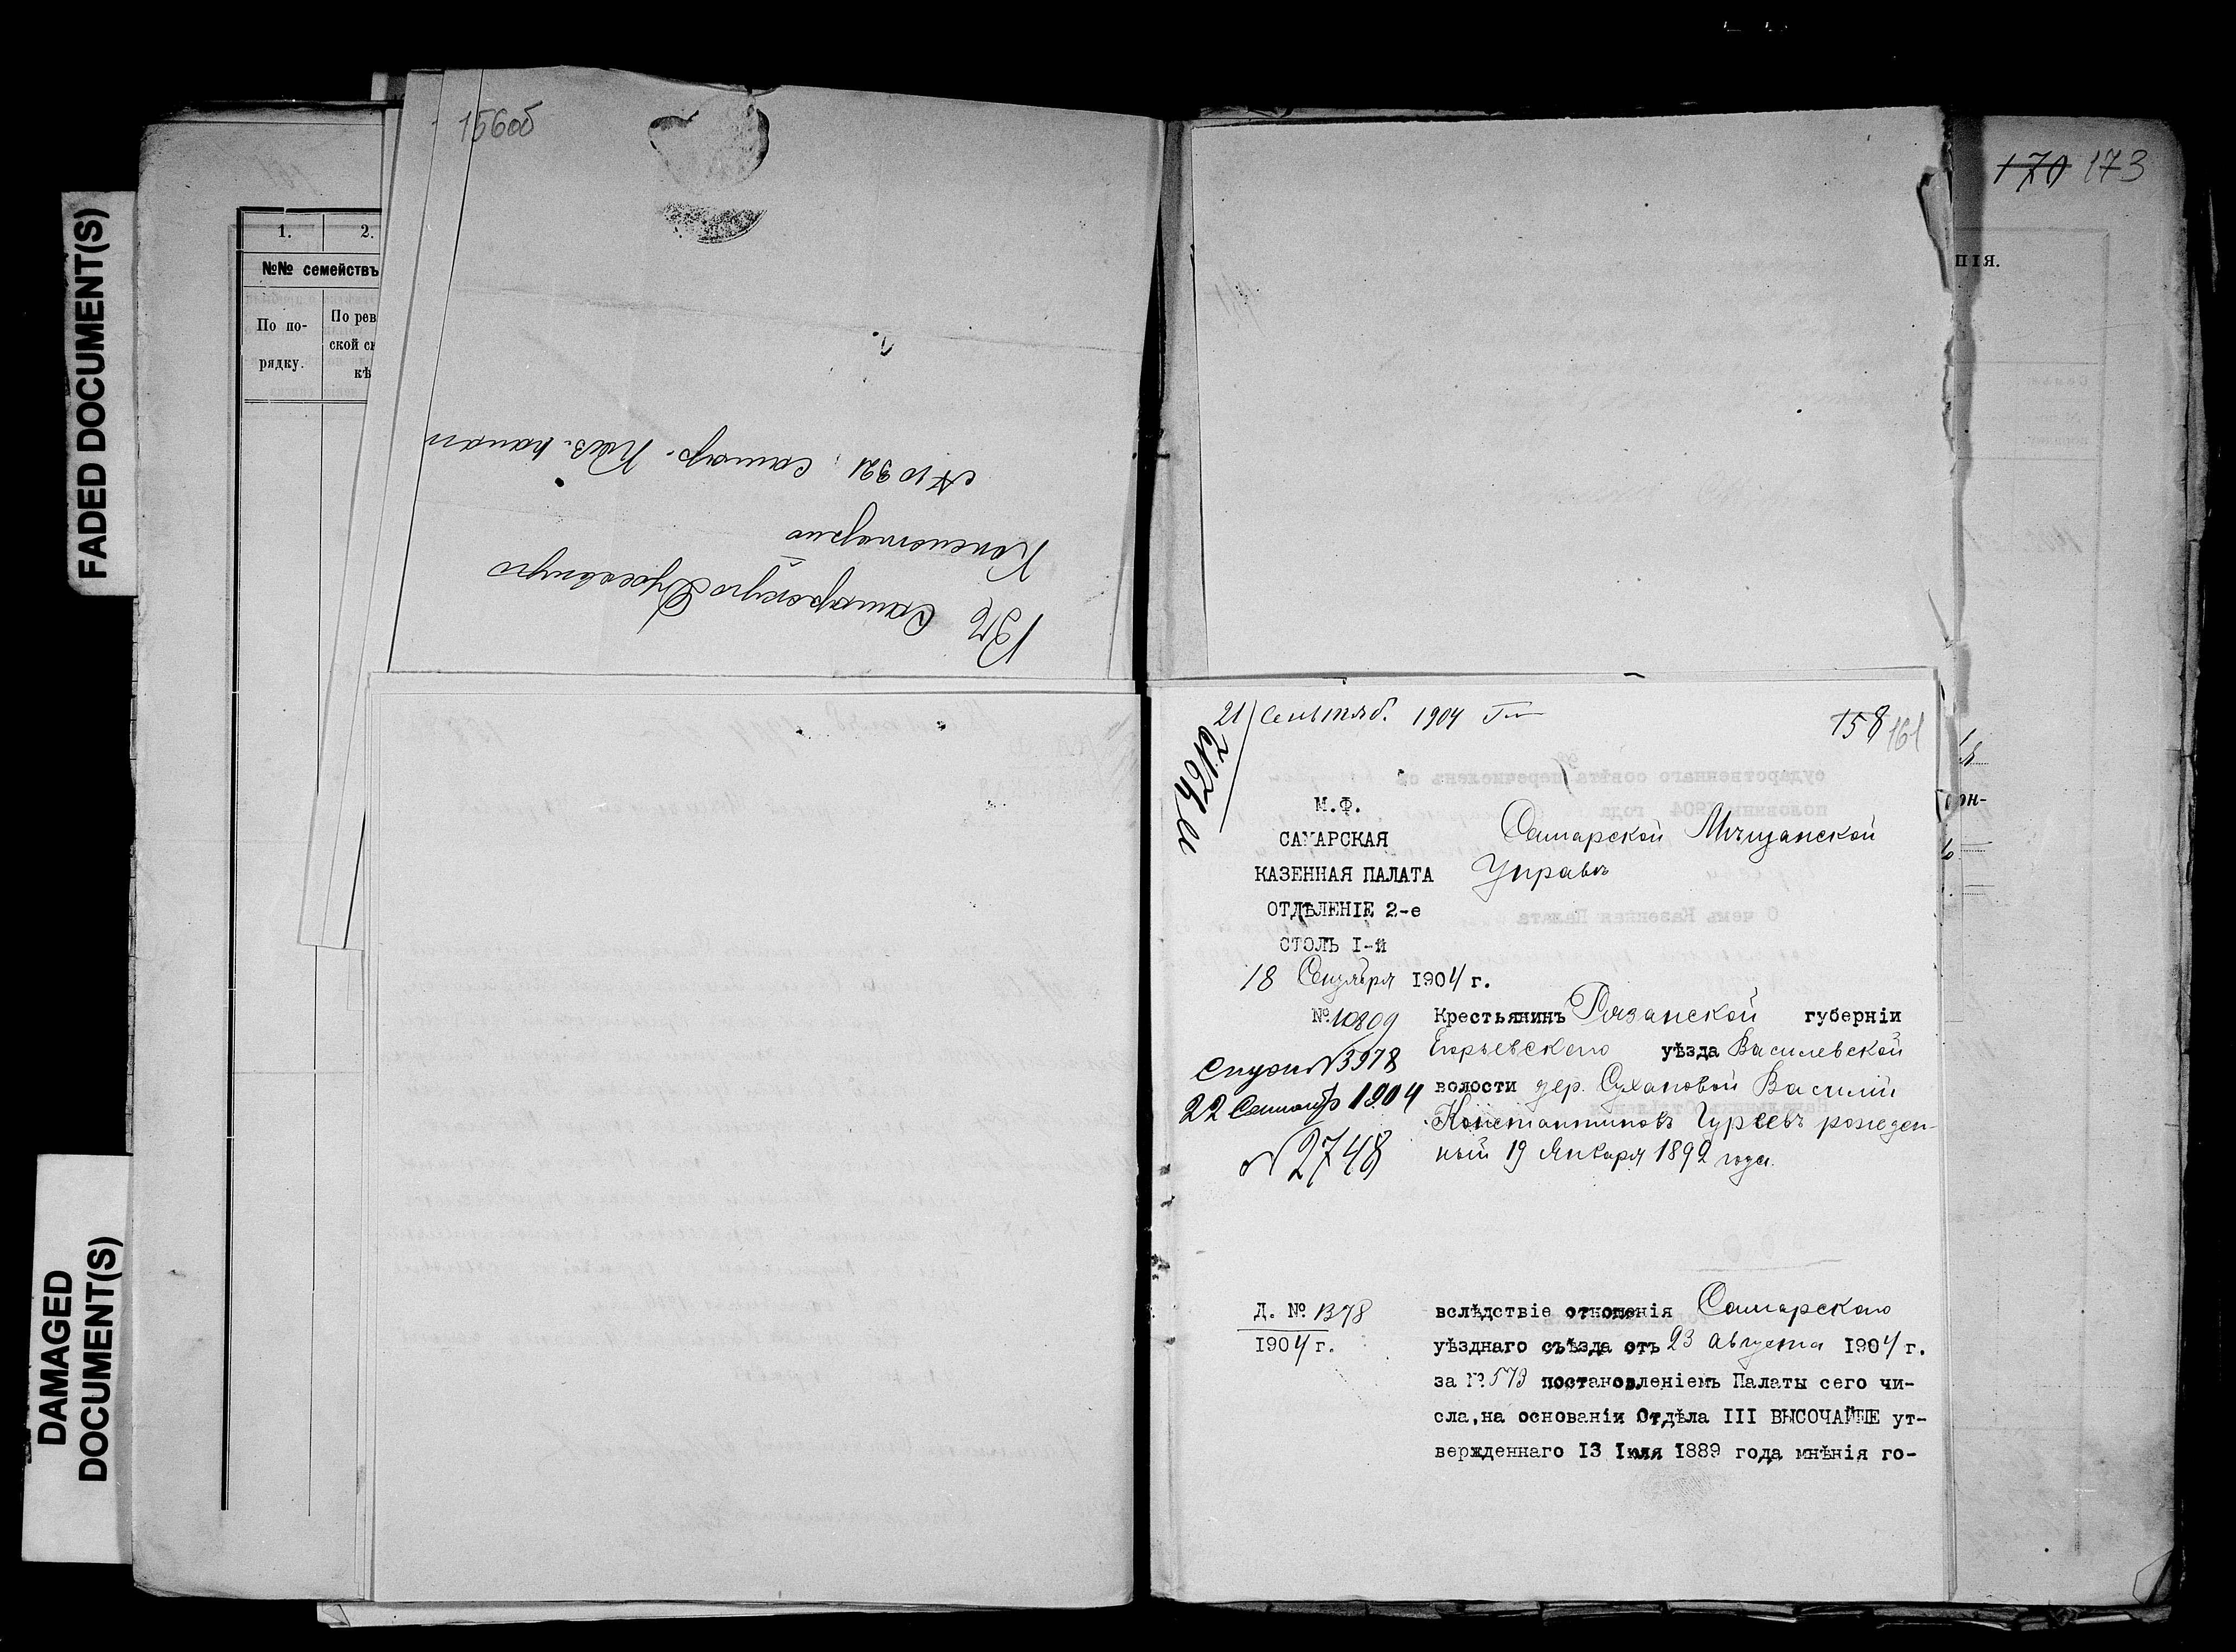 FADED DOCUMENT(S)
DAMAGED
DOCUMENT(S)
1. 2.
№№ семействъ
По по-
рядку.
По рев
ской ск
кѣ
156об
Въ Самарскую Духовную
Консисторію
№ 10321 Самар. Каз. палат
170 173
нія.
21 Сентяб. 1904
158 161
№ 4212
М.Ф.
САМАРСКАЯ
КАЗЕННАЯ ПАЛАТА
ОТДѢЛЕНІЕ 2-е
СТОЛЪ I-й
18 Сентября 1904 г.
№ 10809
Самарской Мѣщанской
Управѣ
Крестьянинъ Рязанской губерніи
Егорьевскаго уѣзда Василевской
волости дер. Сухановой Василій
Константиновъ Гурьевъ рожден-
ный 19 Января 1892 года.
№ 3978
22 Сентяб 1904
№ 2748
Д. № 1378
1904 г.
вслѣдствіе отношенія Самарскаго
уѣзднаго съѣзда отъ 23 Августа 1904 г.
за № 573 постановленіемъ Палаты сего чи-
сла, на основаніи Отдѣла III ВЫСОЧАЙШЕ ут-
вержденнаго 13 Іюля 1889 года мнѣнія го-